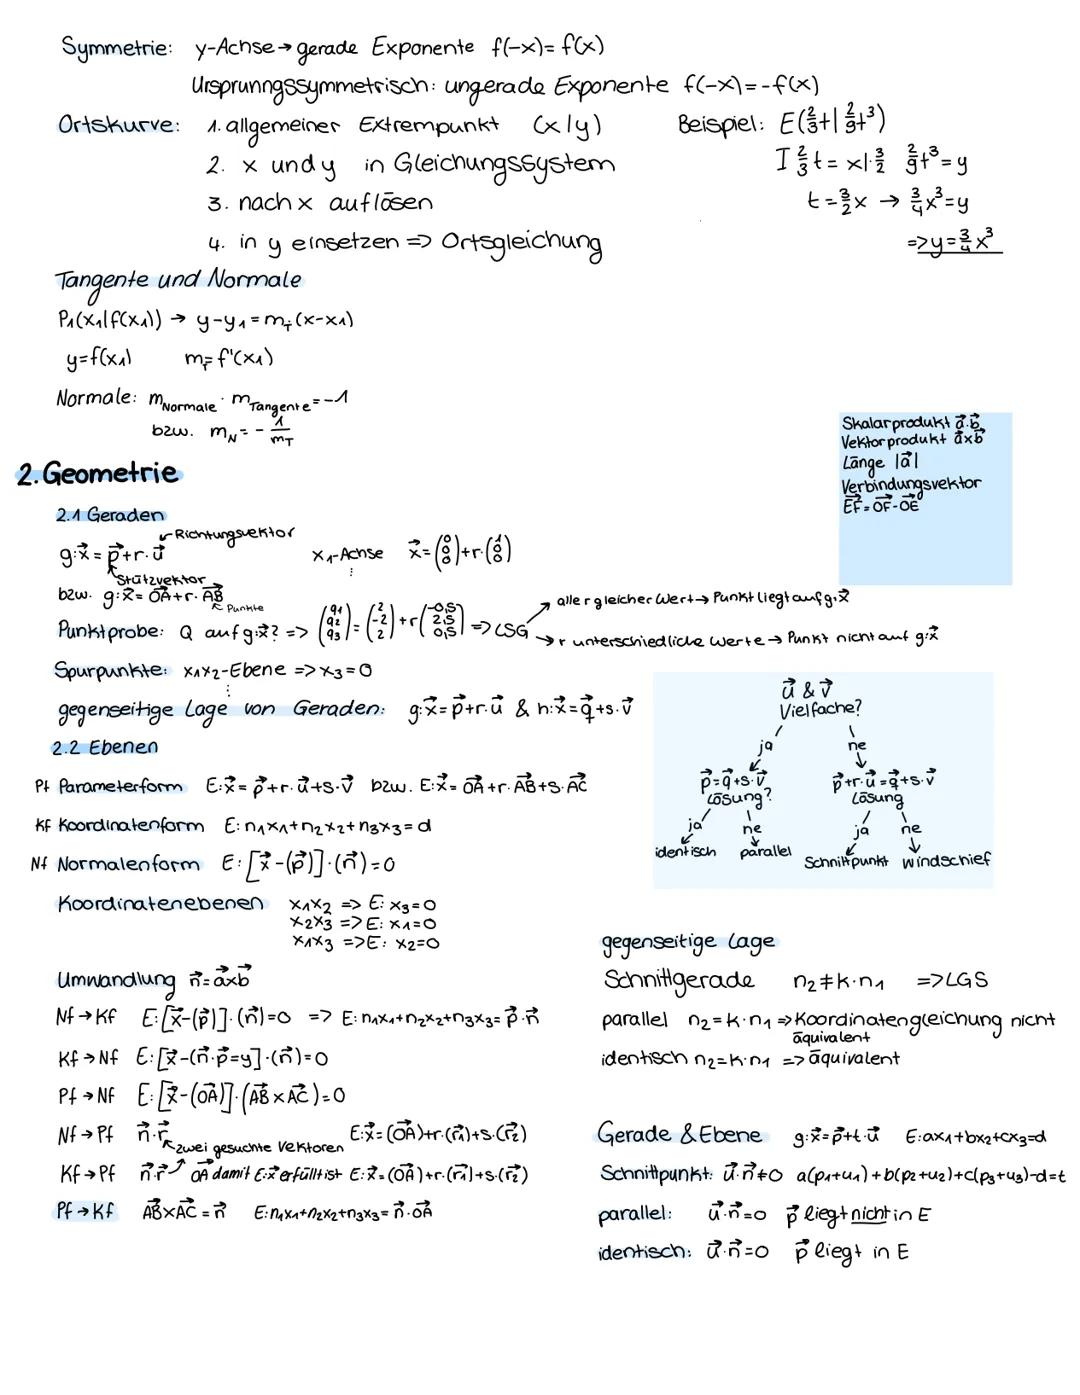 Symmetrie: y-Achse → gerade Exponente f(-x)= f(x)
Ursprunngssymmetrisch: ungerade Exponente f(-x)=-f(x)
Ortskurve: 1. allgemeiner Extrempunkt (x|y)
2. x und y in Gleichungssystem
3. nach x auflösen
4. in y einsetzen => Ortsgleichung
Beispiel: E(2/3t|2/9t³)
I 2/3t = x|·3/2 2/9t³=y
t=3/2x → 3/4x³=y
=>y=3/4x³
Tangente und Normale
P₁(x₁|f(x₁)) → y-y₁=m_T(x-x₁)
y=f(x₁) m_T=f'(x₁)
Normale: m_Normale · m_Tangente=-1
bzw. m_N=-1/m_T
Skalarprodukt a⃗·b⃗
Vektorprodukt a⃗xb⃗
Länge |a⃗|
Verbindungsvektor
EF⃗=OF⃗-OE⃗
2. Geometrie
2.1 Geraden
Richtungsvektor
g:x⃗=p⃗+r·u⃗
Stützvektor
x₁-Achse x⃗=(0 0 0)+r·(1 0 0)
⋮
bzw. g:x⃗=OA⃗+r·AB⃗
Punkte
Punktprobe: Q auf g:x⃗? => (q1 q2 q3)=(2 -2 2)+r(-0,5 2,5 0,5) => LSG
alle r gleicher Wert → Punkt liegt auf g:x⃗
r unterschiedliche Werte → Punkt nicht auf g:x⃗
Spurpunkte: x₁x₂-Ebene => x₃=0
⋮
gegenseitige Lage von Geraden: g:x⃗=p⃗+r·u⃗ & h:x⃗=q⃗+s·v⃗
u⃗ & v⃗
Vielfache?
ja ne
p⃗=q⃗+s·v⃗ p⃗+r·u⃗=q⃗+s·v⃗
Lösung? Lösung
ja ne ja ne
identisch parallel Schnittpunkt windschief
2.2 Ebenen
Pf Parameterform E:x⃗=p⃗+r·u⃗+s·v⃗ bzw. E:x⃗=OA⃗+r·AB⃗+s·AC⃗
Kf Koordinatenform E: n₁x₁+n₂x₂+n₃x₃=d
Nf Normalenform E:[x⃗-(p⃗)]·(n⃗)=0
Koordinatenebenen x₁x₂ => E: x₃=0
x₂x₃ => E: x₁=0
x₁x₃ => E: x₂=0
Umwandlung n⃗=a⃗xb⃗
Nf→Kf E:[x⃗-(p⃗)]·(n⃗)=0 => E:n₁x₁+n₂x₂+n₃x₃=p⃗·n⃗
Kf→Nf E:[x⃗-(n⃗·p⃗=y]·(n⃗)=0
Pf→Nf E:[x⃗-(OA⃗)]·(AB⃗×AC⃗)=0
Nf→Pf n⃗·r⃗ zwei gesuchte Vektoren E:x⃗=(OA⃗)+r·(r⃗₁)+s·(r⃗₂)
Kf→Pf n⃗·r⃗ OA⃗ damit E:x⃗ erfüllt ist E:x⃗=(OA⃗)+r·(r⃗₁)+s·(r⃗₂)
Pf→Kf AB⃗×AC⃗=n⃗ E:n₁x₁+n₂x₂+n₃x₃=n⃗·OA⃗
gegenseitige Lage
Schnittgerade n₂≠k·n₁ =>LGS
parallel n₂=k·n₁ =>Koordinatengleichung nicht
äquivalent
identisch n₂=k·n₁ => äquivalent
Gerade & Ebene g:x⃗=p⃗+t·u⃗ E:ax₁+bx₂+cx₃=d
Schnittpunkt: u⃗·n⃗≠0 a(p₁+u₁)+b(p₂+u₂)+c(p₃+u₃)-d=t
parallel: u⃗·n⃗=0 p⃗ liegt nicht in E
identisch: u⃗·n⃗=0 p⃗ liegt in E